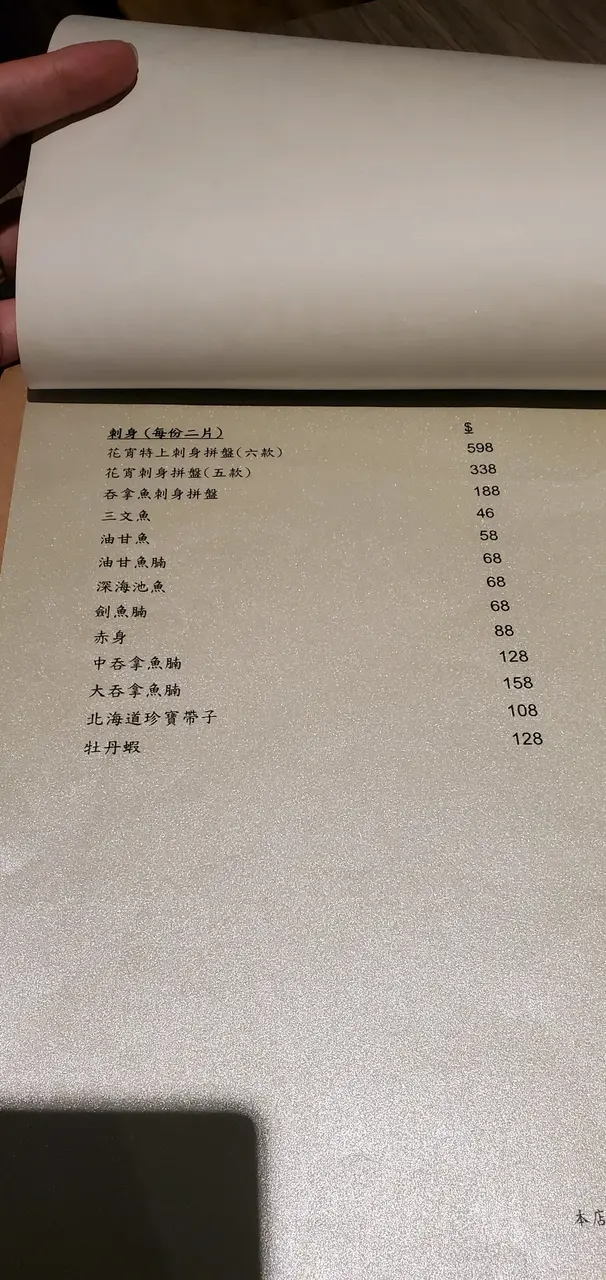 刺身(每份二片) $
花宵特上刺身拼盤(六款) 598
花宵刺身拼盤(五款) 338
吞拿魚刺身拼盤 188
三文魚 46
油甘魚 58
油甘魚腩 68
深海池魚 68
劍魚腩 68
赤身 88
中吞拿魚腩 128
大吞拿魚腩 158
北海道珍寶帶子 108
牡丹蝦 128
本店